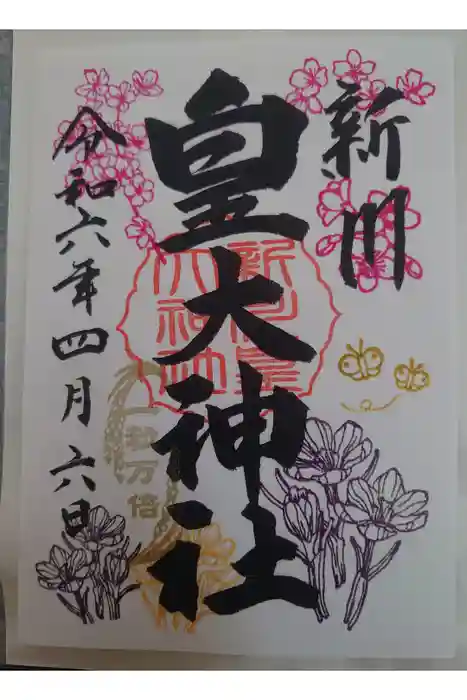 新川
皇大神社
令和六年四月六日
新川皇
大神社
一粒万倍